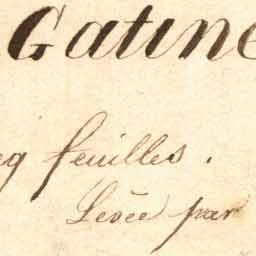 Gatine
q feuilles.
Levée par